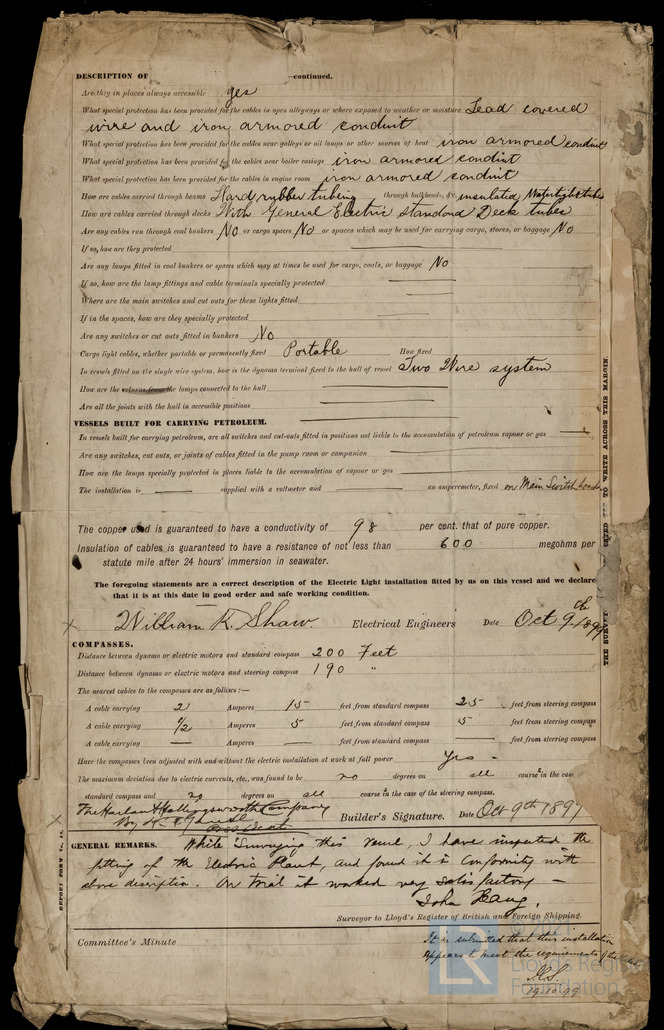 DESCRIPTION OF —continued.
Are they in places always accessible yes
What special protection has been provided for the cables in open alleyways or where exposed to weather or moisture Lead covered
wire and iron armored conduit
What special protection has been provided for the cables near galleys or oil lamps or other sources of heat iron armored conduit
What special protection has been provided for the cables near boiler casings iron armored conduit
What special protection has been provided for the cables in engine room iron armored conduit
How are cables carried through beams Hard rubber tubing through bulkheads, &c. insulated Watertight tubes
How are cables carried through decks With General Electric standard Deck tubes
Are any cables run through coal bunkers No or cargo spaces No or spaces which may be used for carrying cargo, stores, or baggage No
If so, how are they protected
Are any lamps fitted in coal bunkers or spaces which may at times be used for cargo, coals, or baggage No
If so, how are the lamp fittings and cable terminals specially protected
Where are the main switches and cut outs for these lights fitted
If in the spaces, how are they specially protected
Are any switches or cut outs fitted in bunkers No
Cargo light cables, whether portable or permanently fixed Portable How fixed
In vessels fitted on the single wire system, how is the dynamo terminal fixed to the hull of vessel Two Wire system
How are the returns from the lamps connected to the hull
Are all the joints with the hull in accessible positions
VESSELS BUILT FOR CARRYING PETROLEUM.
In vessels built for carrying petroleum, are all switches and cut-outs fitted in positions not liable to the accumulation of petroleum vapour or gas
Are any switches, cut outs, or joints of cables fitted in the pump room or companion
How are the lamps specially protected in places liable to the accumulation of vapour or gas
The installation is supplied with a voltmeter and an amperemeter, fixed on Main Switch board
The copper used is guaranteed to have a conductivity of 98 per cent. that of pure copper.
Insulation of cables is guaranteed to have a resistance of not less than 600 megohms per
statute mile after 24 hours' immersion in seawater.
The foregoing statements are a correct description of the Electric Light installation fitted by us on this vessel and we declare
that it is at this date in good order and safe working condition.
William K. Shaw Electrical Engineers Date Oct 9th 1899
COMPASSES.
Distance between dynamo or electric motors and standard compass 200 Feet
Distance between dynamo or electric motors and steering compass 190 "
The nearest cables to the compasses are as follows:—
A cable carrying 2 Amperes 15 feet from standard compass 25 feet from steering compass
A cable carrying 1/2 Amperes 5 feet from standard compass 5 feet from steering compass
A cable carrying — Amperes — feet from standard compass — feet from steering compass
Have the compasses been adjusted with and without the electric installation at work at full power Yes -
The maximum deviation due to electric currents, etc., was found to be no degrees on all course in the case
standard compass and no degrees on all course in the case of the steering compass.
The Harlan & Hollingsworth Company
President Builder's Signature. Date Oct 9th 1899
GENERAL REMARKS. While Surveying this vessel, I have inspected the
fitting of the Electric Plant, and found it in conformity with
above description. On trial it worked very satisfactory —
John Haug.
Surveyor to Lloyd's Register of British and Foreign Shipping.
Committee's Minute
It is submitted that this installation
appears to meet the requirements of the
19.10.99
REPORT FORM No. 13.
TO WRITE ACROSS THIS MARGIN.
THE SURVEY
Lloyd's Register
Foundation